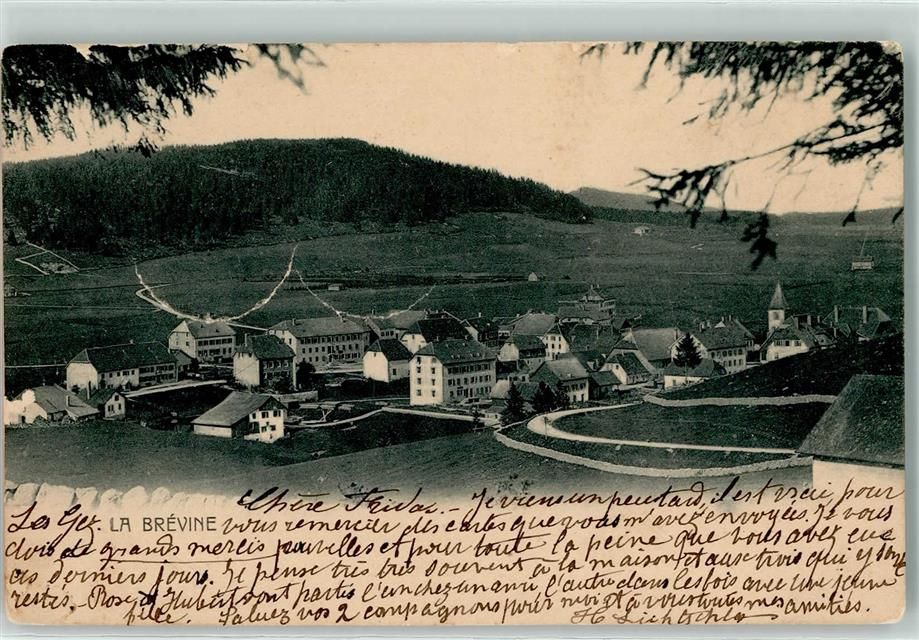 Chère Fridac. Je viens un peu tard, il est vrai pour
Les Gez. LA BRÉVINE vous remercier des cartes que vous m'avez envoyées. Je vous
dois de grands mercis pour elles et pour toute la peine que vous avez eue
ces derniers jours. Je pense très très souvent à la maison et aux trois qui y sont
restés. Rose & Hubert sont partis l'un chez un ami l'autre dans les bois avec une jeune
fille. Saluez vos 2 compagnons pour moi et à vous toutes mes amitiés.